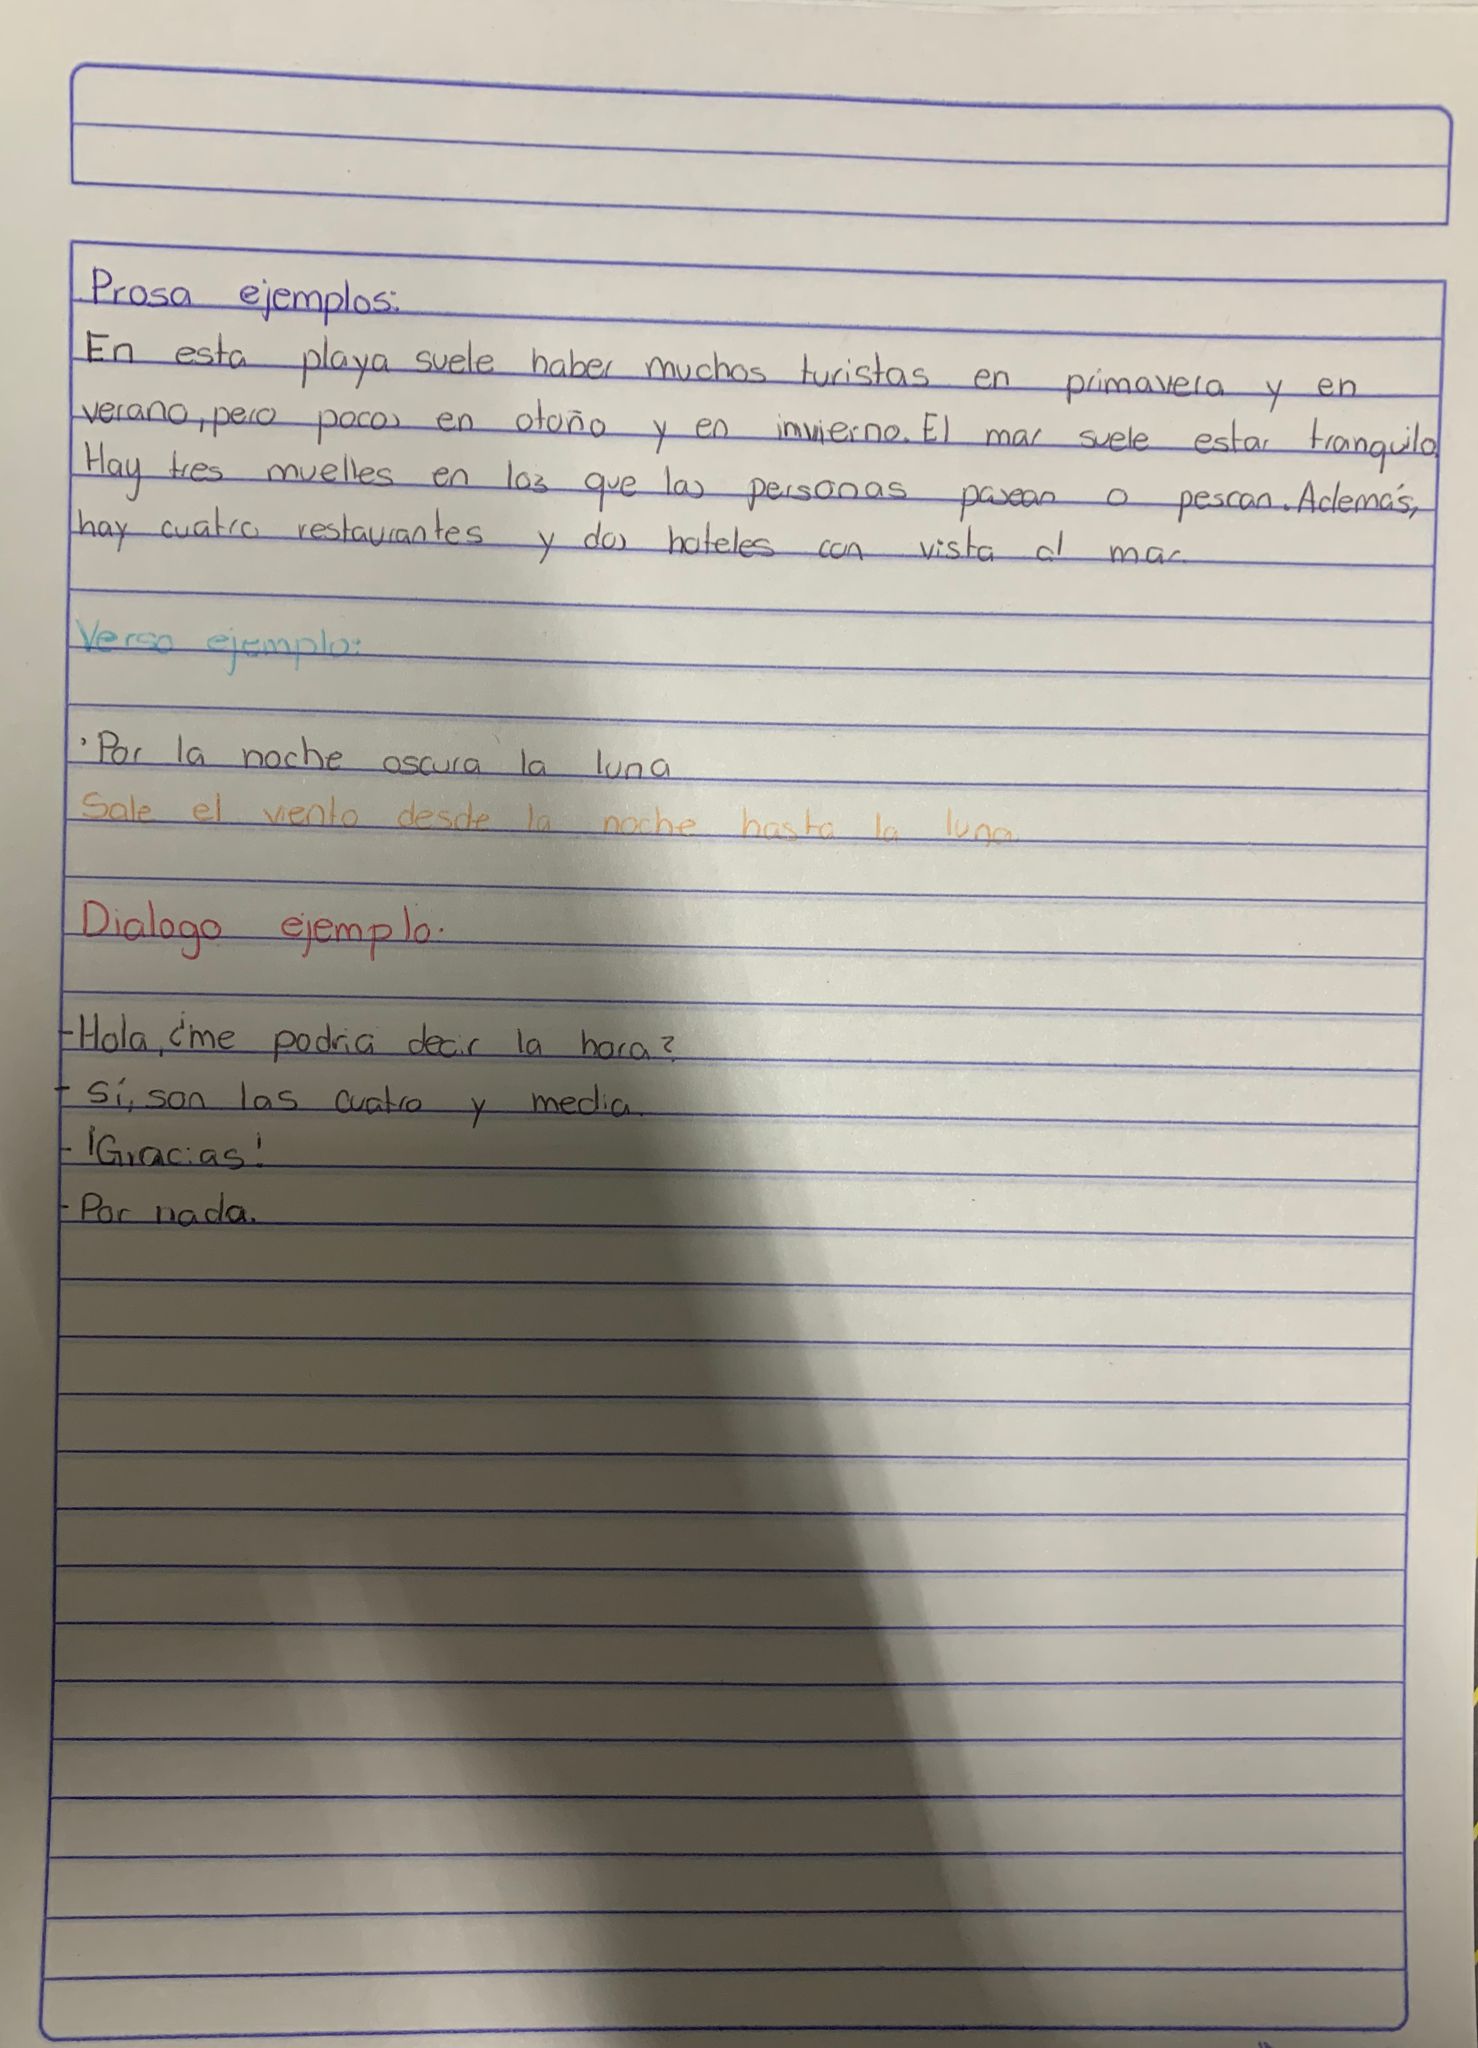 Prosa ejemplos:
En esta playa suele haber muchos turistas en primavera y en
verano, pero pocos en otoño y en invierno. El mar suele estar tranquilo.
Hay tres muelles en los que las personas pasean o pescan. Además,
hay cuatro restaurantes y dos hoteles con vista al mar.
Verso ejemplo:
· Por la noche oscura la luna
Sale el viento desde la noche hasta la luna
Dialogo ejemplo.
-Hola, ¿me podría decir la hora?
- Sí, son las cuatro y media.
- ¡Gracias!
- Por nada.